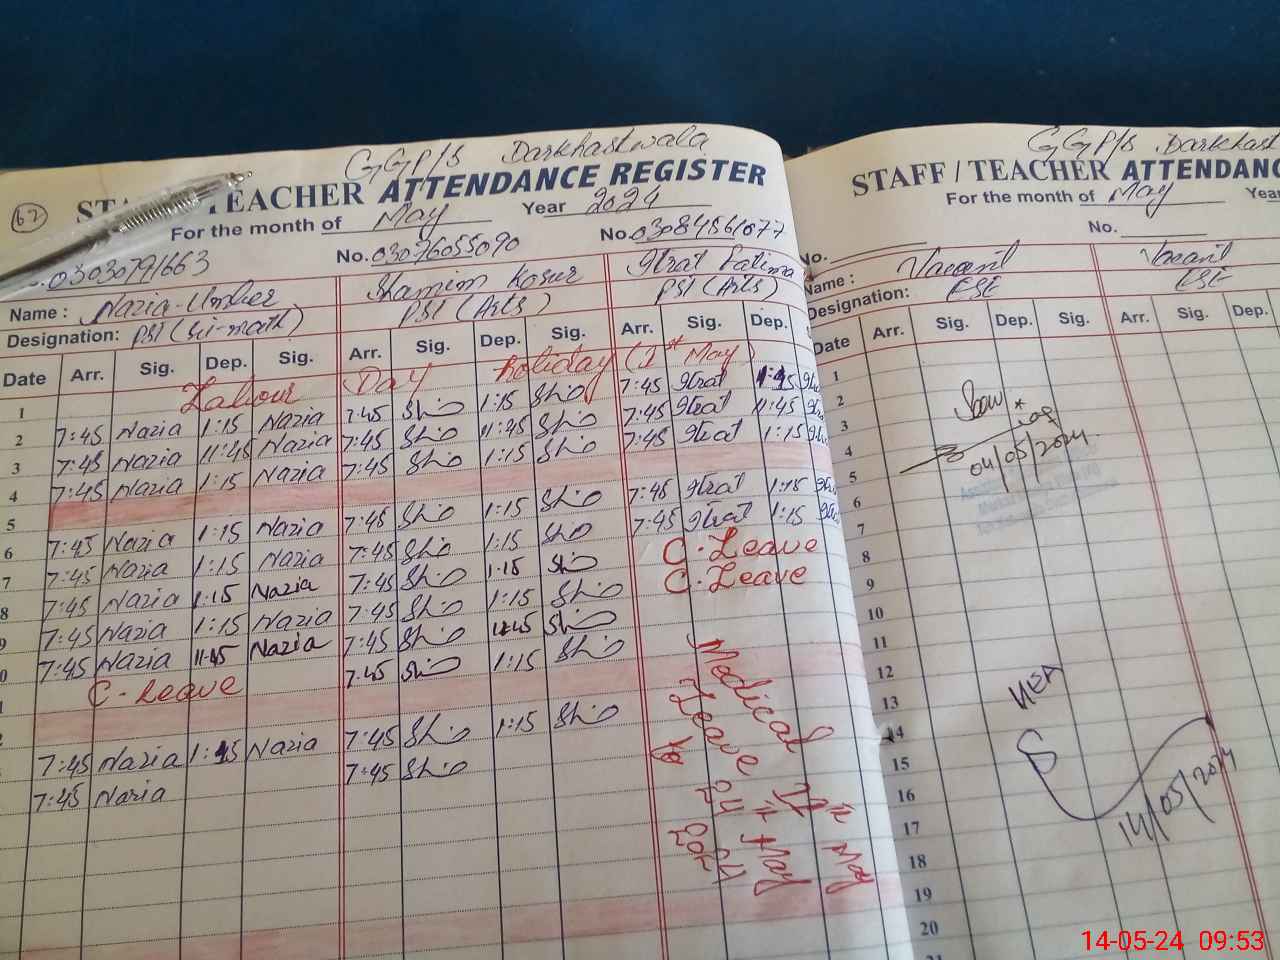 GGP/S Darkhastwala
TEACHER ATTENDANCE REGISTER
62
For the month of May Year 2024
03030791663 No. 03076055090 No. 03084561077
Name : Nazia Umber Shamim Kosur Itrat Fatima
Designation: PST (Sci-math) PST (Arts) PST (Arts)
Date Arr. Sig. Dep. Sig. Arr. Sig. Dep. Sig. Arr. Sig. Dep.
1 Labour Day Holiday (1st May)
2 7:45 Nazia 1:15 Nazia 7:45 1:15 7:45 Itrat
3 7:45 Nazia 11:45 Nazia 7:45 11:45 7:45 Itrat 11:45
4 7:45 Nazia 1:15 Nazia 7:45 1:15 7:45 Itrat 1:15
5
6 7:45 Nazia 1:15 Nazia 7:45 1:15 7:45 Itrat 1:15
7 7:45 Nazia 1:15 Nazia 7:45 1:15 7:45 Itrat 1:15
8 7:45 Nazia 1:15 Nazia 7:45 1:15 C. Leave
9 7:45 Nazia 1:15 Nazia 7:45 1:15 C. Leave
0 7:45 Nazia 11:45 Nazia 7:45 11:45
1 C. Leave 7:45 1:15
2
7:45 Nazia 1:15 Nazia 7:45 1:15
7:45 Nazia 7:45
Medical
Leave
to 24 May
2024
May
GGP/S Darkhast
STAFF / TEACHER ATTENDANC
For the month of May Yea
No. No.
Name : Vacant Vacant
Designation: ESE ESE
Date Arr. Sig. Dep. Sig. Arr. Sig. Dep.
1
2
3
4
5
6
7
8
9
10
11
12
13
14
15
16
17
18
19
20
04/05/2024
14/05/2024
14-05-24 09:53